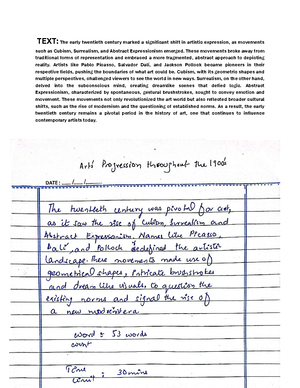 TEXT: The early twentieth century marked a significant shift in artistic expression, as movements
such as Cubism, Surrealism, and Abstract Expressionism emerged. These movements broke away from
traditional forms of representation and embraced a more fragmented, abstract approach to depicting
reality. Artists like Pablo Picasso, Salvador Dalí, and Jackson Pollock became pioneers in their
respective fields, pushing the boundaries of what art could be. Cubism, with its geometric shapes and
multiple perspectives, challenged viewers to see the world in new ways. Surrealism, on the other hand,
delved into the subconscious mind, creating dreamlike scenes that defied logic. Abstract
Expressionism, characterized by spontaneous, gestural brushstrokes, sought to convey emotion and
movement. These movements not only revolutionized the art world but also reflected broader cultural
shifts, such as the rise of modernism and the questioning of established norms. As a result, the early
twentieth century remains a pivotal period in the history of art, one that continues to influence
contemporary artists today.
Arts' Progression throughout the 1900s
DATE: __/__/__
The twentieth century was pivotal for art,
as it saw the rise of Cubism, Surrealism and
Abstract Expressionism. Names like Picasso,
Dalí, and Pollock redefined the artistic
landscape. These movements made use of
geometrical shapes, intricate brushstrokes
and dream like visuals to question the
existing norms and signal the rise of
a new modern era.
word = 53 words
count
Time : 30 mins